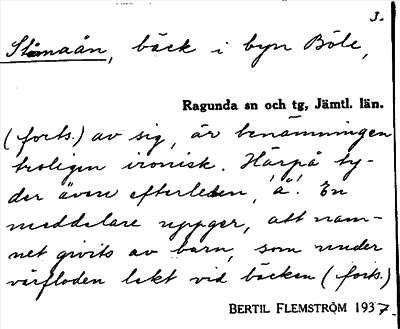 3.
Stamaån, bäck i byn Böle,
Ragunda sn och tg, Jämtl. län.
(forts.) av sig, är benämningen
troligen ironisk. Härpå ty-
der även efterleden, "å". En
meddelare uppger, att nam-
net givits av barn, som under
vårfloden lekt vid bäcken (forts.)
BERTIL FLEMSTRÖM 1937.